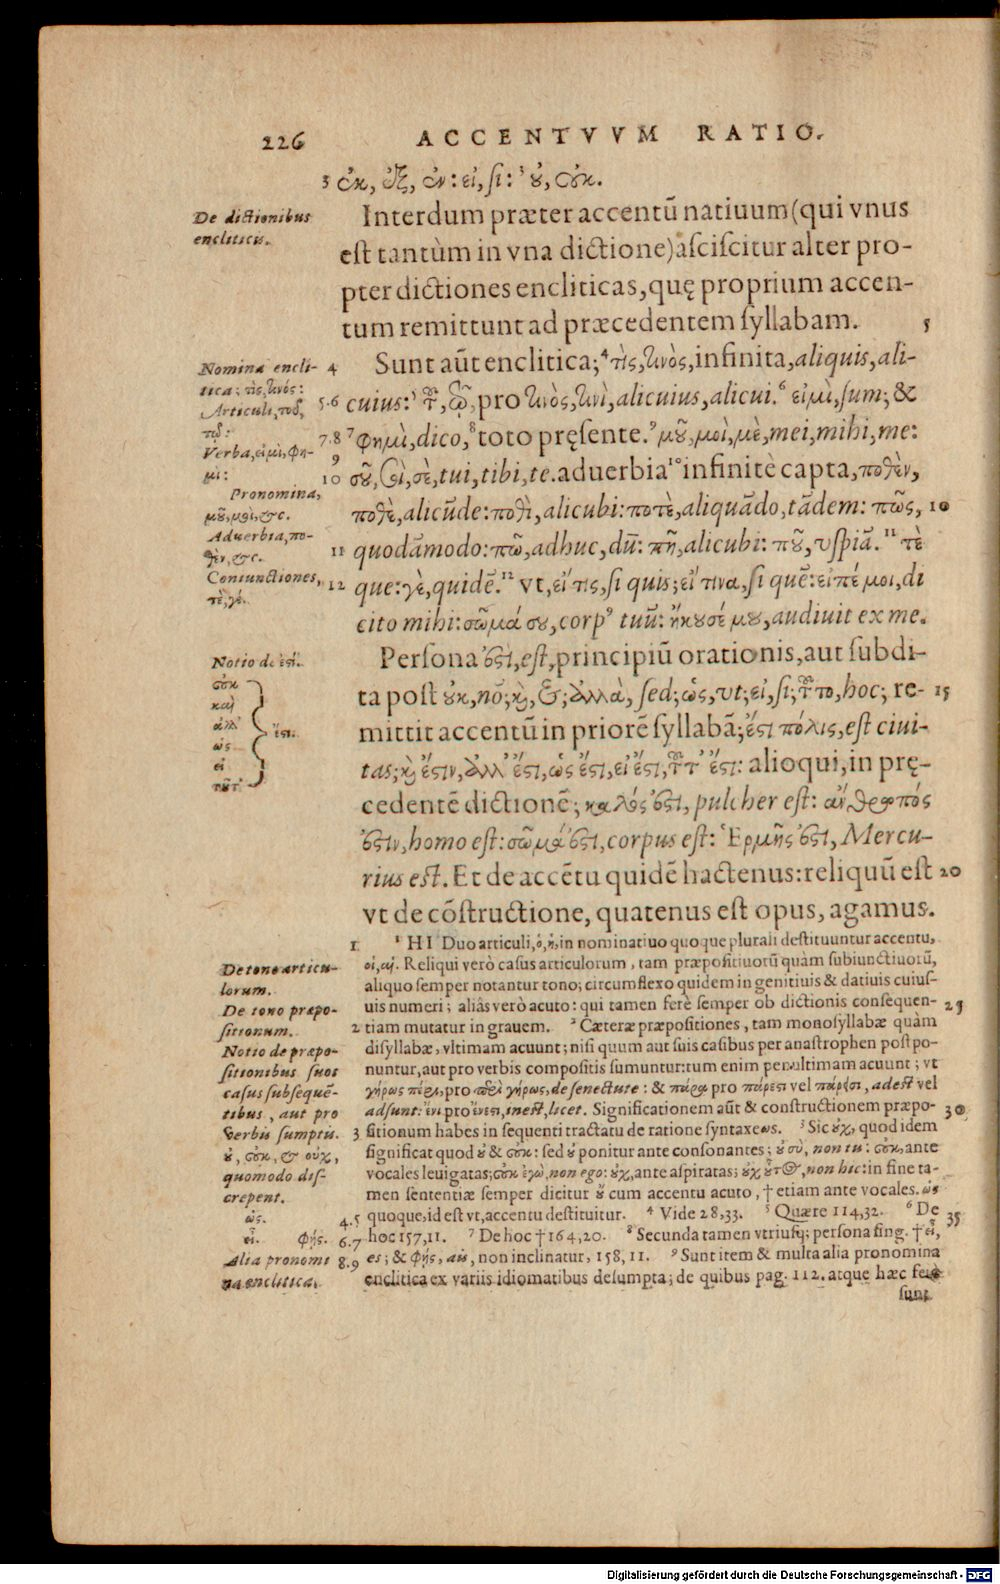 226 ACCENTVVM RATIO.
3 ἐκ, ἐξ, ἐν: εἰ, si: ³ οὐ, οὐκ.
De dictionibus
encliticis.
Interdum præter accentū natiuum (qui vnus
est tantùm in vna dictione) asciscitur alter pro-
pter dictiones encliticas, quę proprium accen-
tum remittunt ad præcedentem syllabam. 5
Nomina encli-
tica; τὶς, τινός:
Articuli, τοῦ,
τῷ:
Verba, εἰμὶ, φη-
μὶ:
Pronomina,
μοῦ, μοὶ, &c.
Aduerbia, πο-
θὲν, &c.
Coniunctiones,
τὲ, γέ.
4 Sunt aūt enclitica; ⁴ τὶς, τινὸς, infinita, aliquis, ali-
5.6 cuius: ⁵ τοῦ, τῷ, pro τινὸς, τινὶ, alicuius, alicui. ⁶ εἰμὶ, sum; &
7.8 ⁷ φημὶ, dico, ⁸ toto pręsente. ⁹ μοῦ, μοὶ, μὲ, mei, mihi, me:
9
10 σοῦ, σοὶ, σὲ, tui, tibi, te. aduerbia ¹⁰ infinitè capta, ποθὲν,
ποθὲ, alicūde: ποθὶ, alicubi: ποτὲ, aliquādo, tādem: πῶς, 10
11 quodāmodo: πῶ, adhuc, dū: πῆ, alicubi: ποῦ, vspiā. ¹¹ τὲ
12 que: γὲ, quidē. ¹² vt, εἴ τις, si quis; εἴ τινα, si quē: εἰπέ μοι, di
cito mihi: σῶμά σου, corpꝰ tuū: ἤκουσέ μου, audiuit ex me.
Notio de ἐστί.
οὐκ
καὶ
ἀλλ'
ὡς
εἰ
τοῦτ'
ἔστι.
Persona ἐστὶ, est, principiū orationis, aut subdi-
ta post οὐκ, nō; καὶ, &; ἀλλὰ, sed; ὡς, vt; εἰ, si; τοῦτο, hoc; re- 15
mittit accentū in priorē syllabā; ἔστι πόλις, est ciui-
tas; καὶ ἔστιν, ἀλλ' ἔστι, ὡς ἔστι, εἰ ἔστι, τοῦτ' ἔστι: alioqui, in prę-
cedentē dictionē; καλός ἐστι, pulcher est: ἄνθρωπός
ἐστιν, homo est: σῶμά ἐστι, corpus est: Ἑρμῆς ἐστι, Mercu-
rius est. Et de accētu quidē hactenus: reliquū est 20
vt de cōstructione, quatenus est opus, agamus.
De tono articu-
lorum.
De tono præpo-
sitionum.
Notio de præpo-
sitionibus suos
casus subsequē-
tibus, aut pro
verbis sumptis.
οὐ, οὐκ, & οὐχ,
quomodo dis-
crepent.
ὡς.
εἶ. φῄς.
Alia pronomi
na enclitica.
1. ¹ HI Duo articuli, ὁ, ἡ, in nominatiuo quoque plurali destituuntur accentu,
οἱ, αἱ. Reliqui verò casus articulorum, tam præpositiuorū quàm subiunctiuorū,
aliquo semper notantur tono; circumflexo quidem in genitiuis & datiuis cuius-
uis numeri; aliâs verò acuto: qui tamen ferè semper ob dictionis consequen- 25
2 tiam mutatur in grauem. ² Cæteræ præpositiones, tam monosyllabæ quàm
disyllabæ, vltimam acuunt; nisi quum aut suis casibus per anastrophen postpo-
nuntur, aut pro verbis compositis sumuntur: tum enim penultimam acuunt; vt
γήρως πέρι, pro περὶ γήρως, de senectute: & πάρα pro πάρεστι vel πάρεισι, adest vel
adsunt: ἔνι pro ἔνεστι, inest, licet. Significationem aūt & constructionem præpo- 30
3 sitionum habes in sequenti tractatu de ratione syntaxeως. ³ Sic οὐχ, quod idem
significat quod οὐ & οὐκ: sed οὐ ponitur ante consonantes; οὐ σὺ, non tu: οὐκ, ante
vocales leuigatas; οὐκ ἐγὼ, non ego: οὐχ, ante aspiratas; οὐχ οὗτος, non hic: in fine ta-
men sententiæ semper dicitur οὔ cum accentu acuto, † etiam ante vocales. ὡς
4.5 quoque, id est vt, accentu destituitur. ⁴ Vide 28, 33. ⁵ Quære 114, 32. ⁶ De 35
6.7 hoc 157, 11. ⁷ De hoc † 164, 20. ⁸ Secunda tamen vtriusq; persona sing. † εἶ,
8.9 es; & φῄς, ais, non inclinatur, 158, 11. ⁹ Sunt item & multa alia pronomina
enclitica ex variis idiomatibus desumpta; de quibus pag. 112. atque hæc ferè
sunt
Digitalisierung gefördert durch die Deutsche Forschungsgemeinschaft - DFG